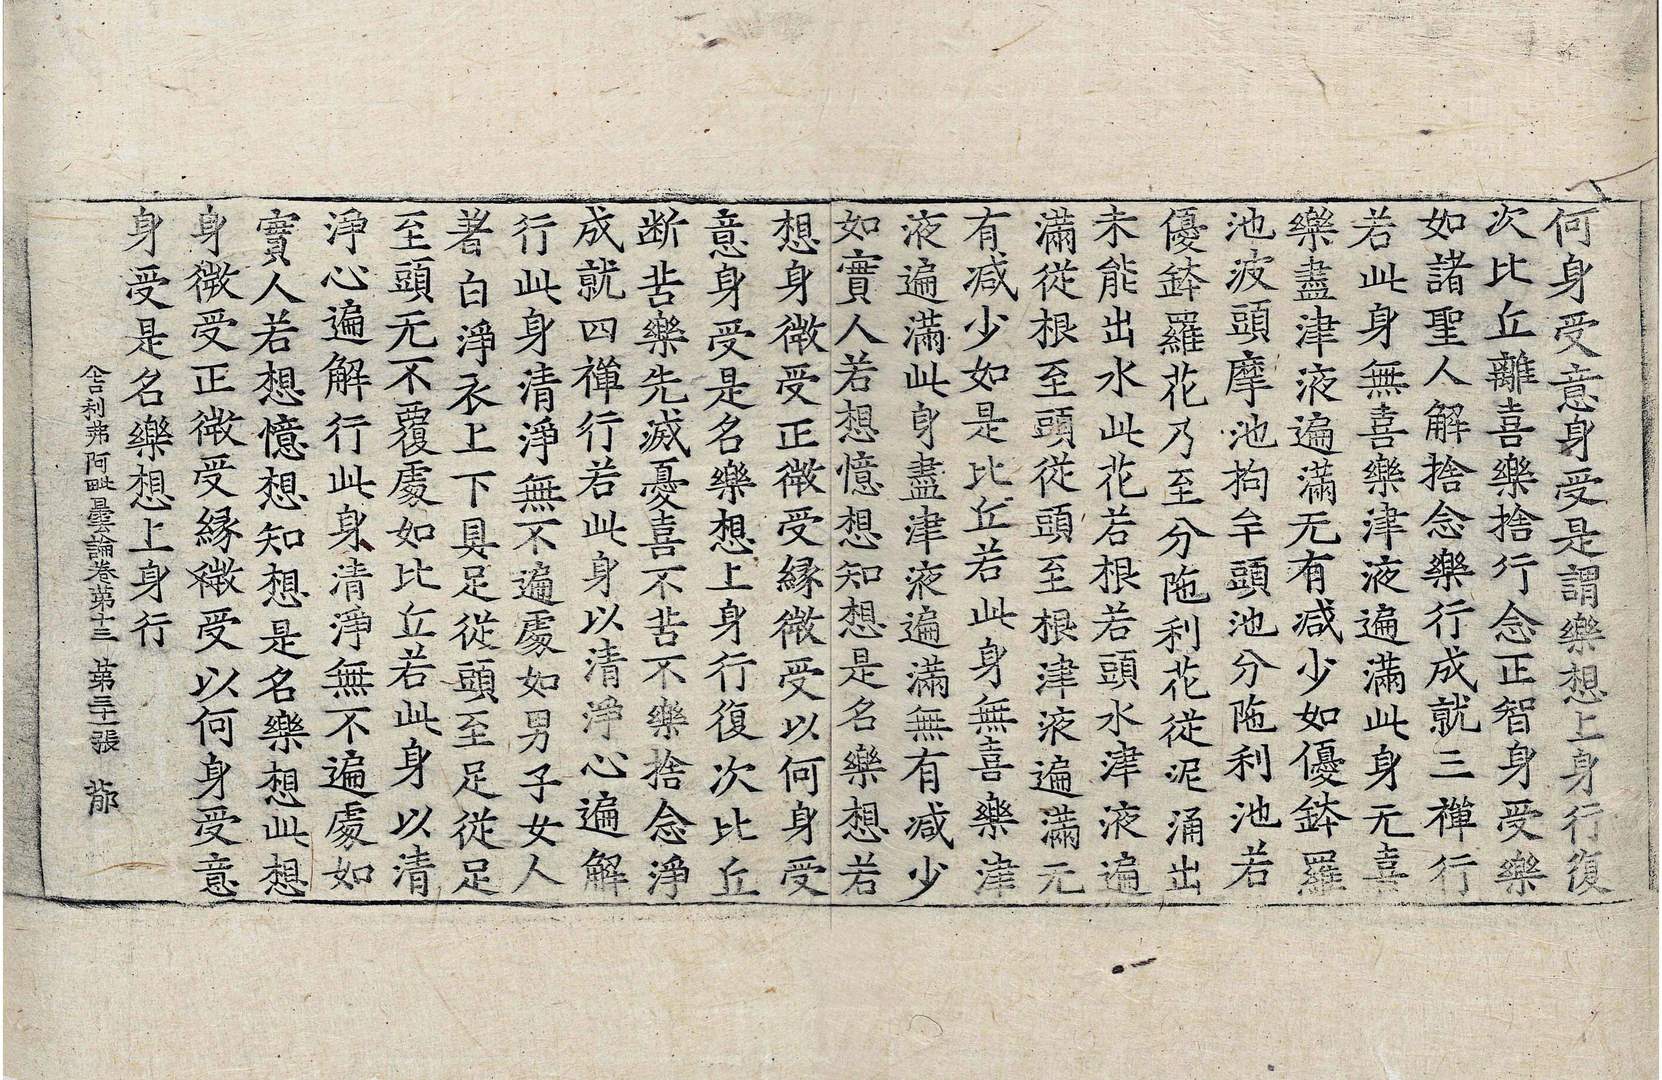 何身受意身受是謂樂想上身行復
次比丘離喜樂捨行念正智身受樂
如諸聖人解捨念樂行成就三禪行
若此身無喜樂津液遍滿此身无喜
樂盡津液遍滿无有減少如優鉢羅
池波頭摩池拘牟頭池分陁利池若
優鉢羅花乃至分陁利花從泥涌出
未能出水此花若根若頭水津液遍
滿從根至頭從頭至根津液遍滿无
有減少如是比丘若此身無喜樂津
液遍滿此身盡津液遍滿無有減少
如實人若想憶想知想是名樂想若
想身微受正微受緣微受以何身受
意身受是名樂想上身行復次比丘
断苦樂先滅憂喜不苦不樂捨念淨
成就四禪行若此身以清淨心遍解
行此身清淨無不遍處如男子女人
著白淨衣上下具足從頭至足從足
至頭无不覆處如比丘若此身以清
淨心遍解行此身清淨無不遍處如
實人若想憶想知想是名樂想此想
身微受正微受緣微受以何身受意
身受是名樂想上身行
舍利弗阿毗曇論卷第十三 第三十一張